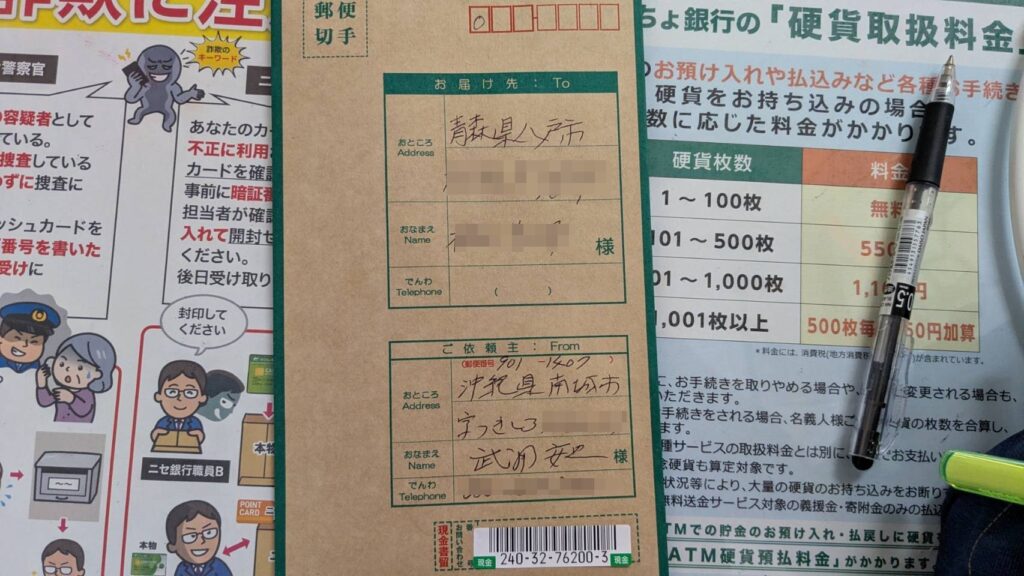 詐欺に注
詐欺の
キーワード
警察官
容疑者として
ている。
捜査している
わずに捜査に
ッシュカードを
番号を書いた
受けに
あなたのカー
不正に利用
カードを確認
事前に暗証番
担当者が確認
入れて開封せ
ください。
後日受け取り
封印して
ください
ニセ銀行職員B
本物
本物
POINT
CARD
郵便
切手
0
お届け先:To
おところ
Address
青森県八戸市
おなまえ
Name
様
でんわ
Telephone
( )
ご依頼主:From
(郵便番号 901-1407)
おところ
Address
沖縄県南城市
字つきしろ
おなまえ
Name
様
でんわ
Telephone
現金書留
お問い合わせ
番号
現金 240-32-76200-3 現金
ちょ銀行の「硬貨取扱料金」
のお預け入れや払込みなど各種お手続き
硬貨をお持ち込みの場合
数に応じた料金がかかります。
硬貨枚数
料金
1~100枚
無料
101~500枚
550
01~1,000枚
1,001枚以上
500枚毎
50円加算
*料金には、消費税(地方消費税
が含まれています。
に、お手続きを取りやめる場合や、
変更される場合も、
いただきます。
手続きをされる場合、名義人様ご
貨の枚数を合算し、
ます。
種サービスの取扱料金とは別に、
でお支払い
念硬貨も算定対象です。
状況等により、大量の硬貨のお持ち込みをお断り
無料送金サービス対象の義援金・寄附金のみの払込
ATMでの貯金のお預け入れ・払戻しに硬貨
ATM硬貨預払料金」がかかります